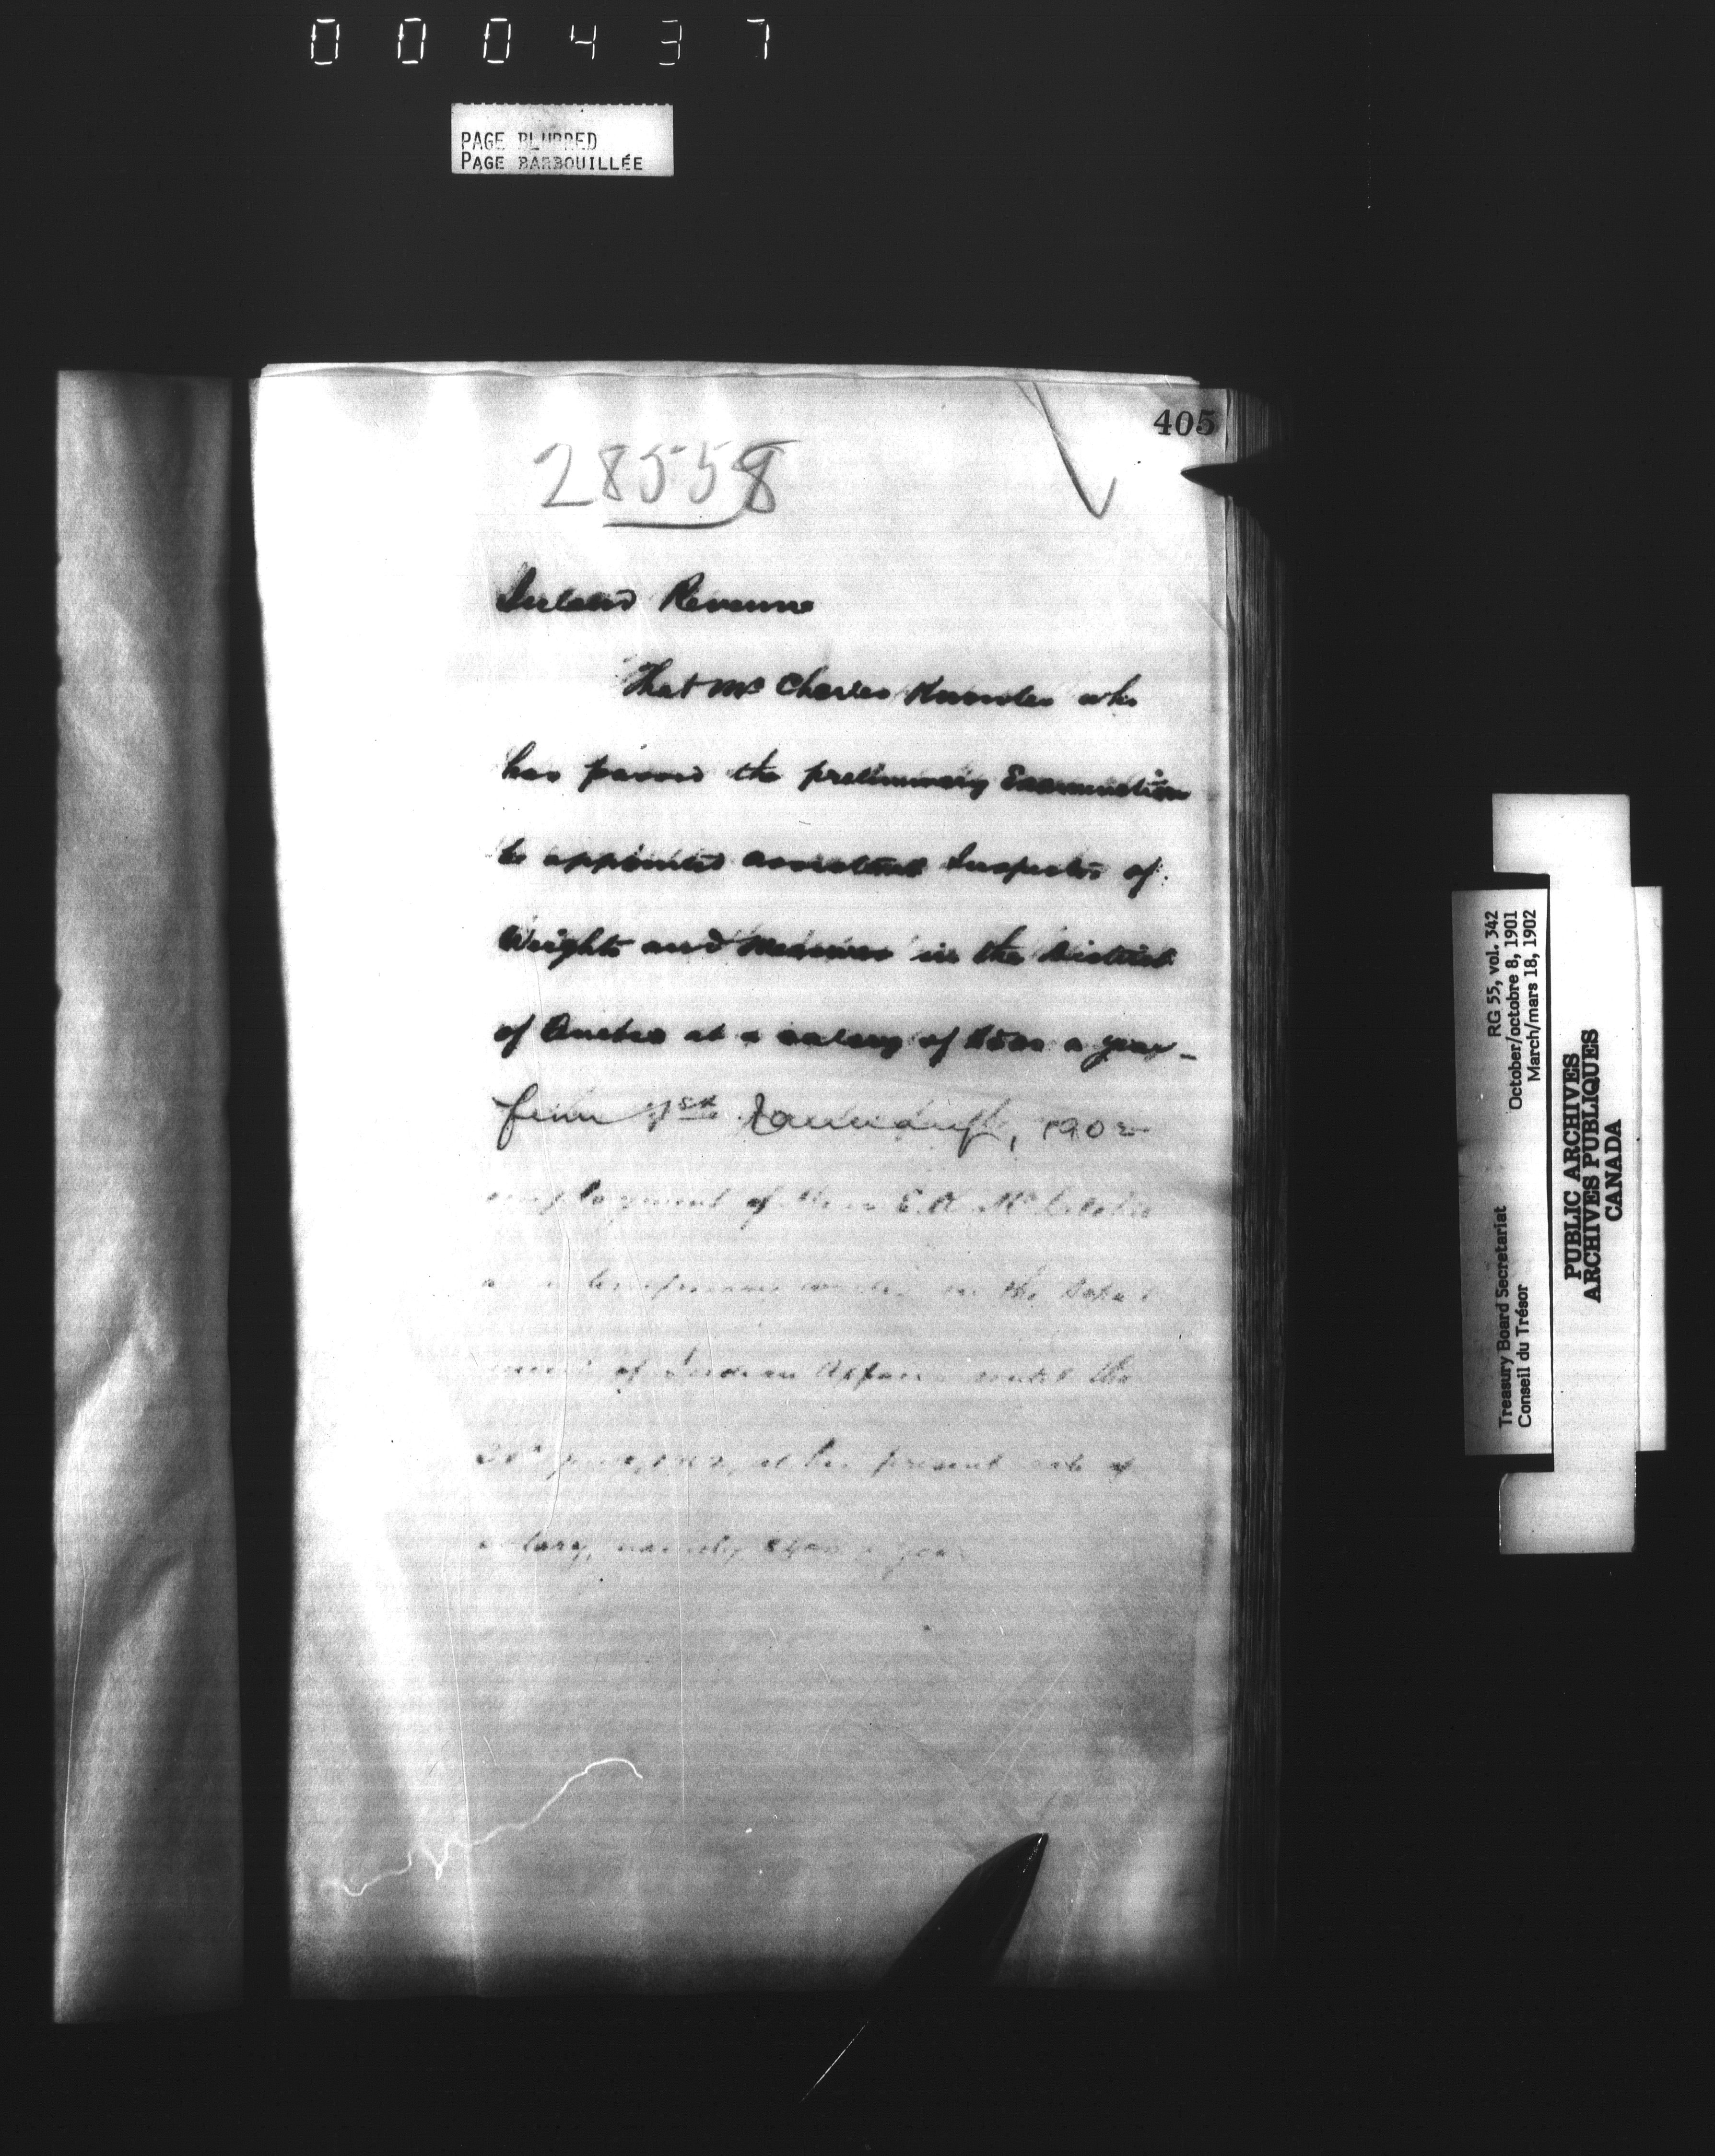 000437
PAGE BLURRED
PAGE BARBOUILLÉE
405
28558
Inland Revenue
That Mr Charles Knowles who
has passed the preliminary Examination
be appointed assistant Inspector of
Weights and Measures in the District
of Quebec at a salary of $500 a year -
from 1st January, 1902
employment of Miss E. A. Mc
in the Depart
ment of Indian Affairs until the
at her present rate of
salary, namely a year
Treasury Board Secretariat RG 55, vol. 342
Conseil du Trésor October/octobre 8, 1901
March/mars 18, 1902
PUBLIC ARCHIVES
ARCHIVES PUBLIQUES
CANADA